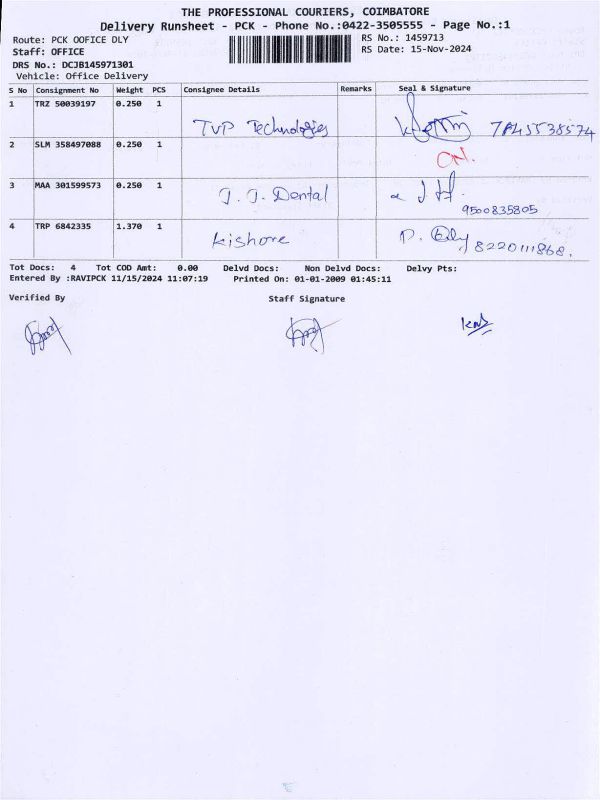 THE PROFESSIONAL COURIERS, COIMBATORE
Delivery Runsheet - PCK - Phone No.:0422-3505555 - Page No.:1
Route: PCK OOFICE DLY
RS No.: 1459713
Staff: OFFICE
RS Date: 15-Nov-2024
DRS No.: DCJB145971301
Vehicle: Office Delivery
S No Consignment No Weight PCS Consignee Details Remarks Seal & Signature
1 TRZ 50039197 0.250 1
TVP Technologies
2 SLM 358497088 0.250 1
3 MAA 301599573 0.250 1
J. J. Dental
9500835805
4 TRP 6842335 1.370 1
Kishore
8220111868.
Tot Docs: 4 Tot COD Amt: 0.00 Delvd Docs: Non Delvd Docs: Delvy Pts:
Entered By :RAVIPCK 11/15/2024 11:07:19 Printed On: 01-01-2009 01:45:11
Verified By Staff Signature